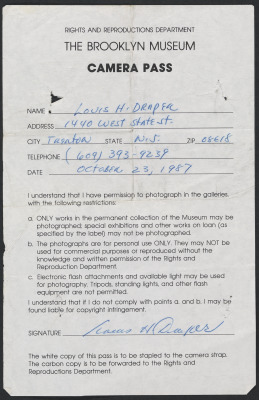 RIGHTS AND REPRODUCTIONS DEPARTMENT
THE BROOKLYN MUSEUM
CAMERA PASS
NAME Louis H. Draper
ADDRESS 1440 West State St.
CITY Trenton STATE N.J. ZIP 08618
TELEPHONE (609) 393-9239
DATE October 23, 1987
I understand that I have permission to photograph in the galleries
with the following restrictions:
a. ONLY works in the permanent collection of the Museum may be
photographed; special exhibitions and other works on loan (as
specified by the label) may not be photographed.
b. The photographs are for personal use ONLY. They may NOT be
used for commercial purposes or reproduced without the
knowledge and written permission of the Rights and
Reproduction Department.
c. Electronic flash attachments and available light may be used
for photography. Tripods, standing lights, and other flash
equipment are not permitted.
I understand that if I do not comply with points a. and b. I may be
found liable for copyright infringement.
SIGNATURE Louis H Draper
The white copy of this pass is to be stapled to the camera strap.
The carbon copy is to be forwarded to the Rights and
Reproductions Department.